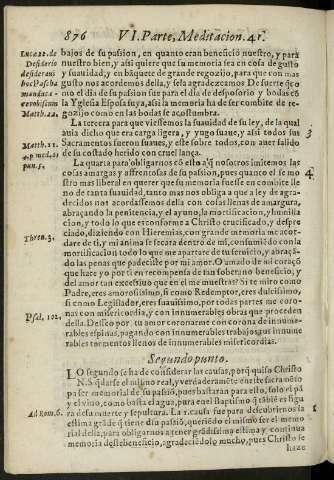 876 VI. Parte, Meditacion. 41.
Luc. 22. de
Desiderio
desideraui
hoc Pascha
manducare
vobiscum
Matth. 22.
bajos de su passion, en quanto eran beneficio nuestro, y para
nuestro bien, y assi quiere que su memoria sea en cosa de gusto
y suauidad, y en bāquete de grande regozijo, para que con mas
gusto nos acordemos della, y sela agradezcamos De suerte q̄ co
mo el dia de su passion fue para el dia de desposorio y bodas cō
la Yglesia Esposa suya, assi la memoria ha de ser combite de re-
gozijo como en las bodas se acostumbra.
La tercera para que viessemos la suauidad de su ley, de la qual
auia dicho que era carga ligera, y yugo suaue, y assi todos sus
Sacramentos fueron suaues, y este sobre todos, con auer salido
de su costado herido con cruel lança.
Matth. 11.
3
La quarta para obligarnos cō esto a q̄ nosotros imitemos las
cosas amargas y affrentosas de su passion, pues quanto el se mo
stro mas liberal en querer que su memoria fuesse en combite lle
no de tanta suauidad, tanto mas nos obliga a que a ley de agra-
decidos nos acordassemos della con cosas llenas de amargura,
abraçando la penitencia, y el ayuno, la mortificacion, y humilla
cion, y todo lo que es conforme a Christo crucificado, y despre
ciado, diziendo con Hieremias, con grande memoria me acor-
dare de ti, y mi anima se secara dentro de mi, consumiēdo con la
mortificacion todo lo que me apartare de tu seruicio, y abraçā-
do las penas que padeciste por mi amor. O amado de mi coraçō
que hate yo por ti en recompensa de tan soberano beneficio, y
del amor tan excessiuo que en el me muestras? Si te miro como
Padre, eres amorosissimo, si como Redemptor, eres dulcissimo,
si como Legislador, eres suauissimo, por todas partes me coro-
nas con misericordia, y con innumerables obras que proceden
della. Desseo por tu amor coronarme con corona de innume-
rables espinas, pagando con innumerables trabajos tus innume
rables tormentos llenos de innumerables misericordias.
4
Thren. 3.
Psal. 102.
Segundo punto.
LO segundo se ha de cōsiderar las causas, porq̄ quiso Christo
N. S. q̄darse el mismo real, y verdaderamēte en este sacramēto
para ser memorial de su passion, pues bastaran para esto, solo el pā
y el vino, como basta el agua, para en el Baptismo q̄ tābiē es figu
ra de su muerte y sepultura. La 1. causa fue para descubrirnos la
estima grāde q̄ tiene diu passiō, queriēdo el mismo ser el memo
rial della, para obligarnos a tener grādissima estima y continua
memoria deste beneficio, agradeciēdolo mucho, pues Christo se
haze
Ad Rom. 6.
1